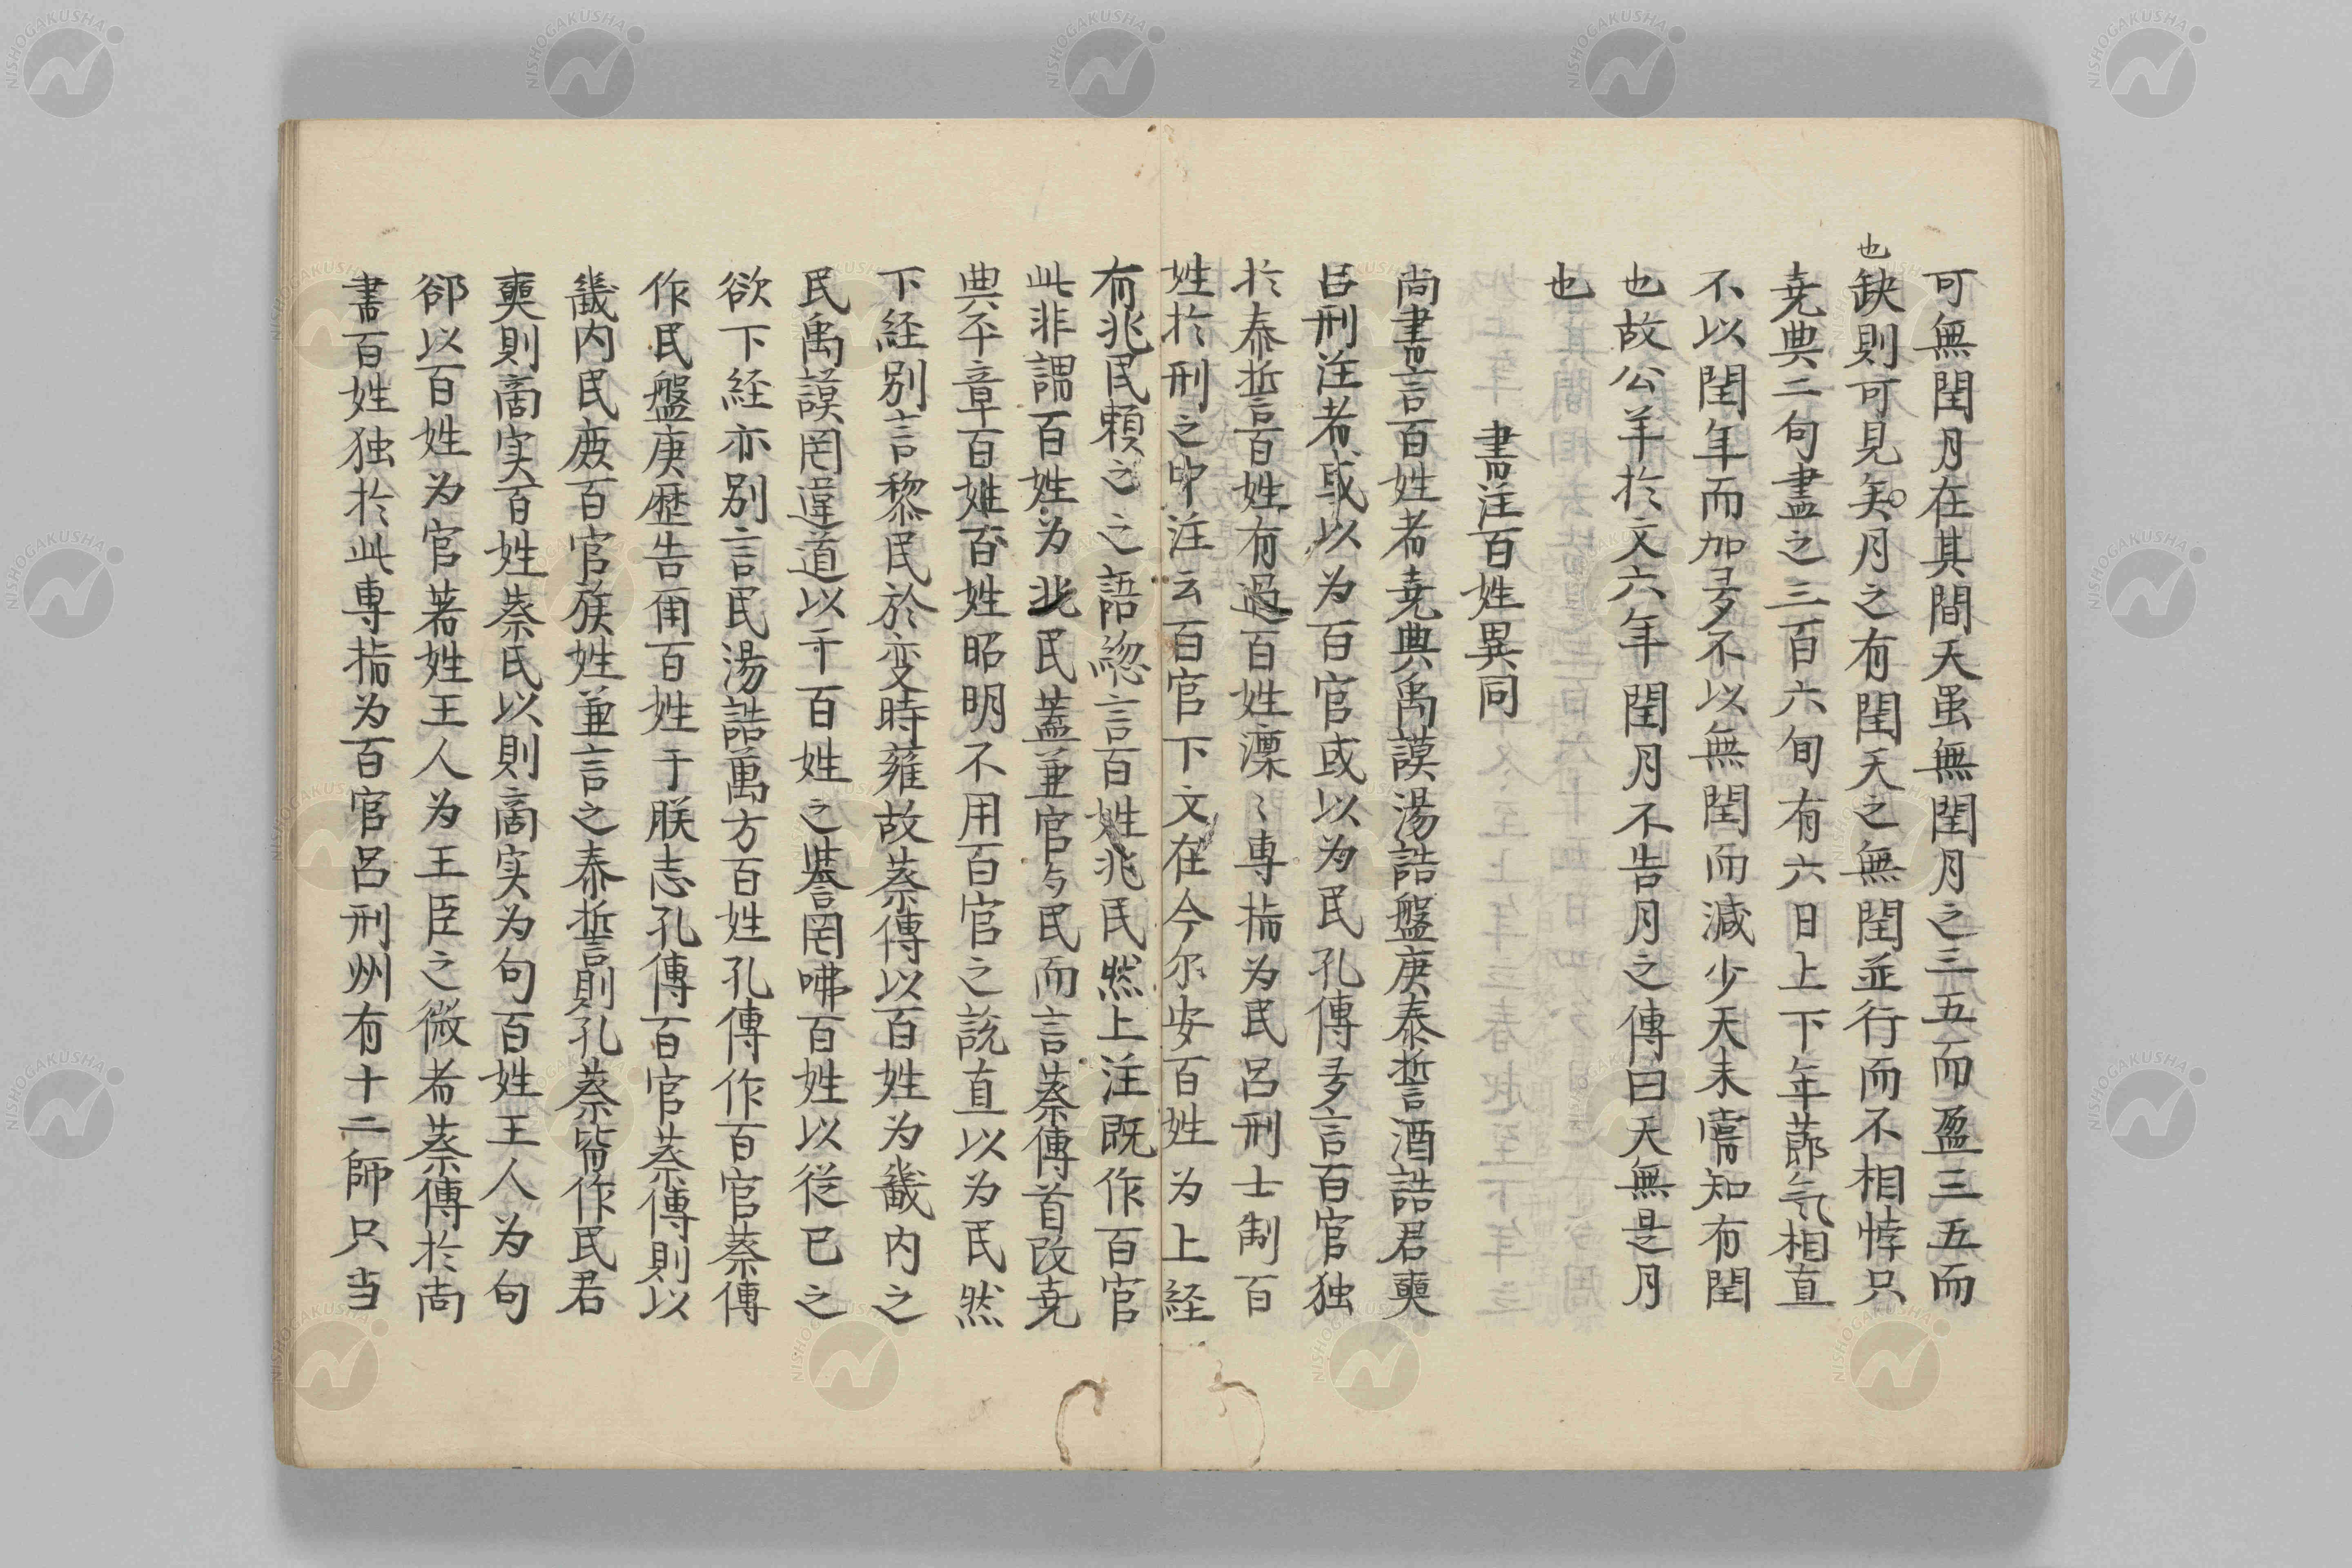 可無閏月在其間天虽無閏月之三五而盈三五而
也缺則可見矣月之有閏天之無閏並行而不相悖只
尭典二句盡之三百六旬有六日上下年莭気相直
不以閏年而加多不以無閏而減少天未嘗知有閏
也故公羊於文六年閏月不告月之傳曰天無是月
也
書注百姓異同
尚書言百姓者尭典禹謨湯誥盤庚泰誓酒誥君奭
呂刑注者或以為百官或以为民孔傳多言百官独
於泰誓百姓有過百姓凜〻専指为民呂刑士制百
姓於刑之中注云百官下文在今尔安百姓为上経
有兆民頼之之語緫言百姓兆民然上注既作百官
此非謂百姓为兆民蓋兼官与民而言蔡傳首改尭
典平章百姓百姓昭明不用百官之説直以为民然
下経别言黎民於变時雍故蔡傳以百姓为畿内之
民禹謨罔違道以干百姓之誉罔咈百姓以従已之
欲下経亦别言民湯誥萬方百姓孔傳作百官蔡傳
作民盤庚歴告甪百姓于朕志孔傳百官蔡傳則以
畿内民庶百官族姓兼言之泰誓則孔蔡皆作民君
奭則商实百姓蔡氏以則商实为句百姓王人为句
郤以百姓为官著姓王人为王臣之微者蔡傳於尚
書百姓独於此専指为百官呂刑州有十二師只当
NISHOGAKUSHA